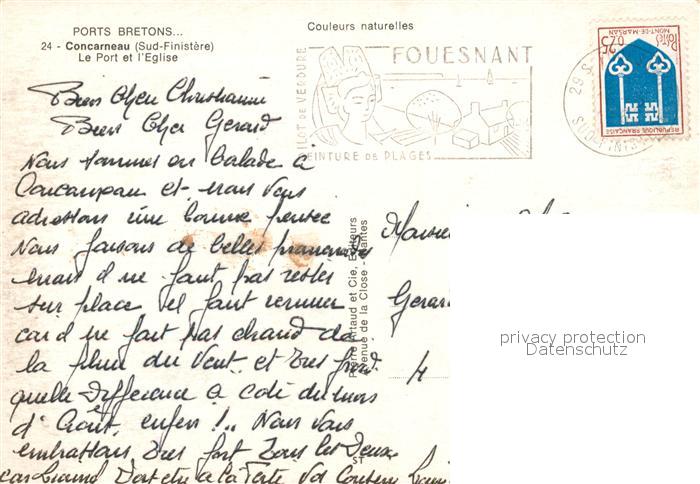 PORTS BRETONS...
24 - Concarneau (Sud-Finistère)
Le Port et l'Eglise
Couleurs naturelles
FOUESNANT
ILOT DE VERDURE
CEINTURE DE PLAGES
0,25
Postes
MONT-DE-MARSAN
REPUBLIQUE FRANÇAISE
29 S
Bien Cher Christianne
Bien Cher Gerard
Nous sommes en balade à
Concarneau et nous vous
adressons une bonne pensée
Nous faisons de belles promenades
mais il ne faut pas rester
sur place il faut remuer
car il ne fait pas chaud de
la pluie du vent et très froid
quelle différence a coté du mois
d'Août, enfin !.. Nous vous
embrassons très fort tous les Deux
Pierre Artaud et Cie, Editeurs
Avenue de la Close - Nantes
ST
Monsieur
Gerard
4
privacy protection
Datenschutz